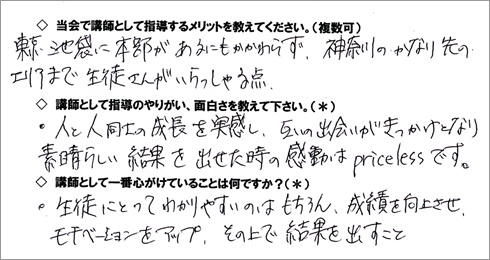 ◇ 当会で講師として指導するメリットを教えてください。(複数可)
東京 池袋に本部があるにもかかわらず、神奈川のかなり先の
エリアまで生徒さんがいらっしゃる点.
◇ 講師として指導のやりがい、面白さを教えて下さい。(*)
・人と人同士の成長を実感し、互いの出会いがきっかけとなり
素晴らしい結果を出せた時の感動はpricelessです。
◇ 講師として一番心がけていることは何ですか?(*)
・生徒にとってわかりやすいのはもちろん、成績を向上させ、
モチベーションをアップ、その上で結果を出すこと